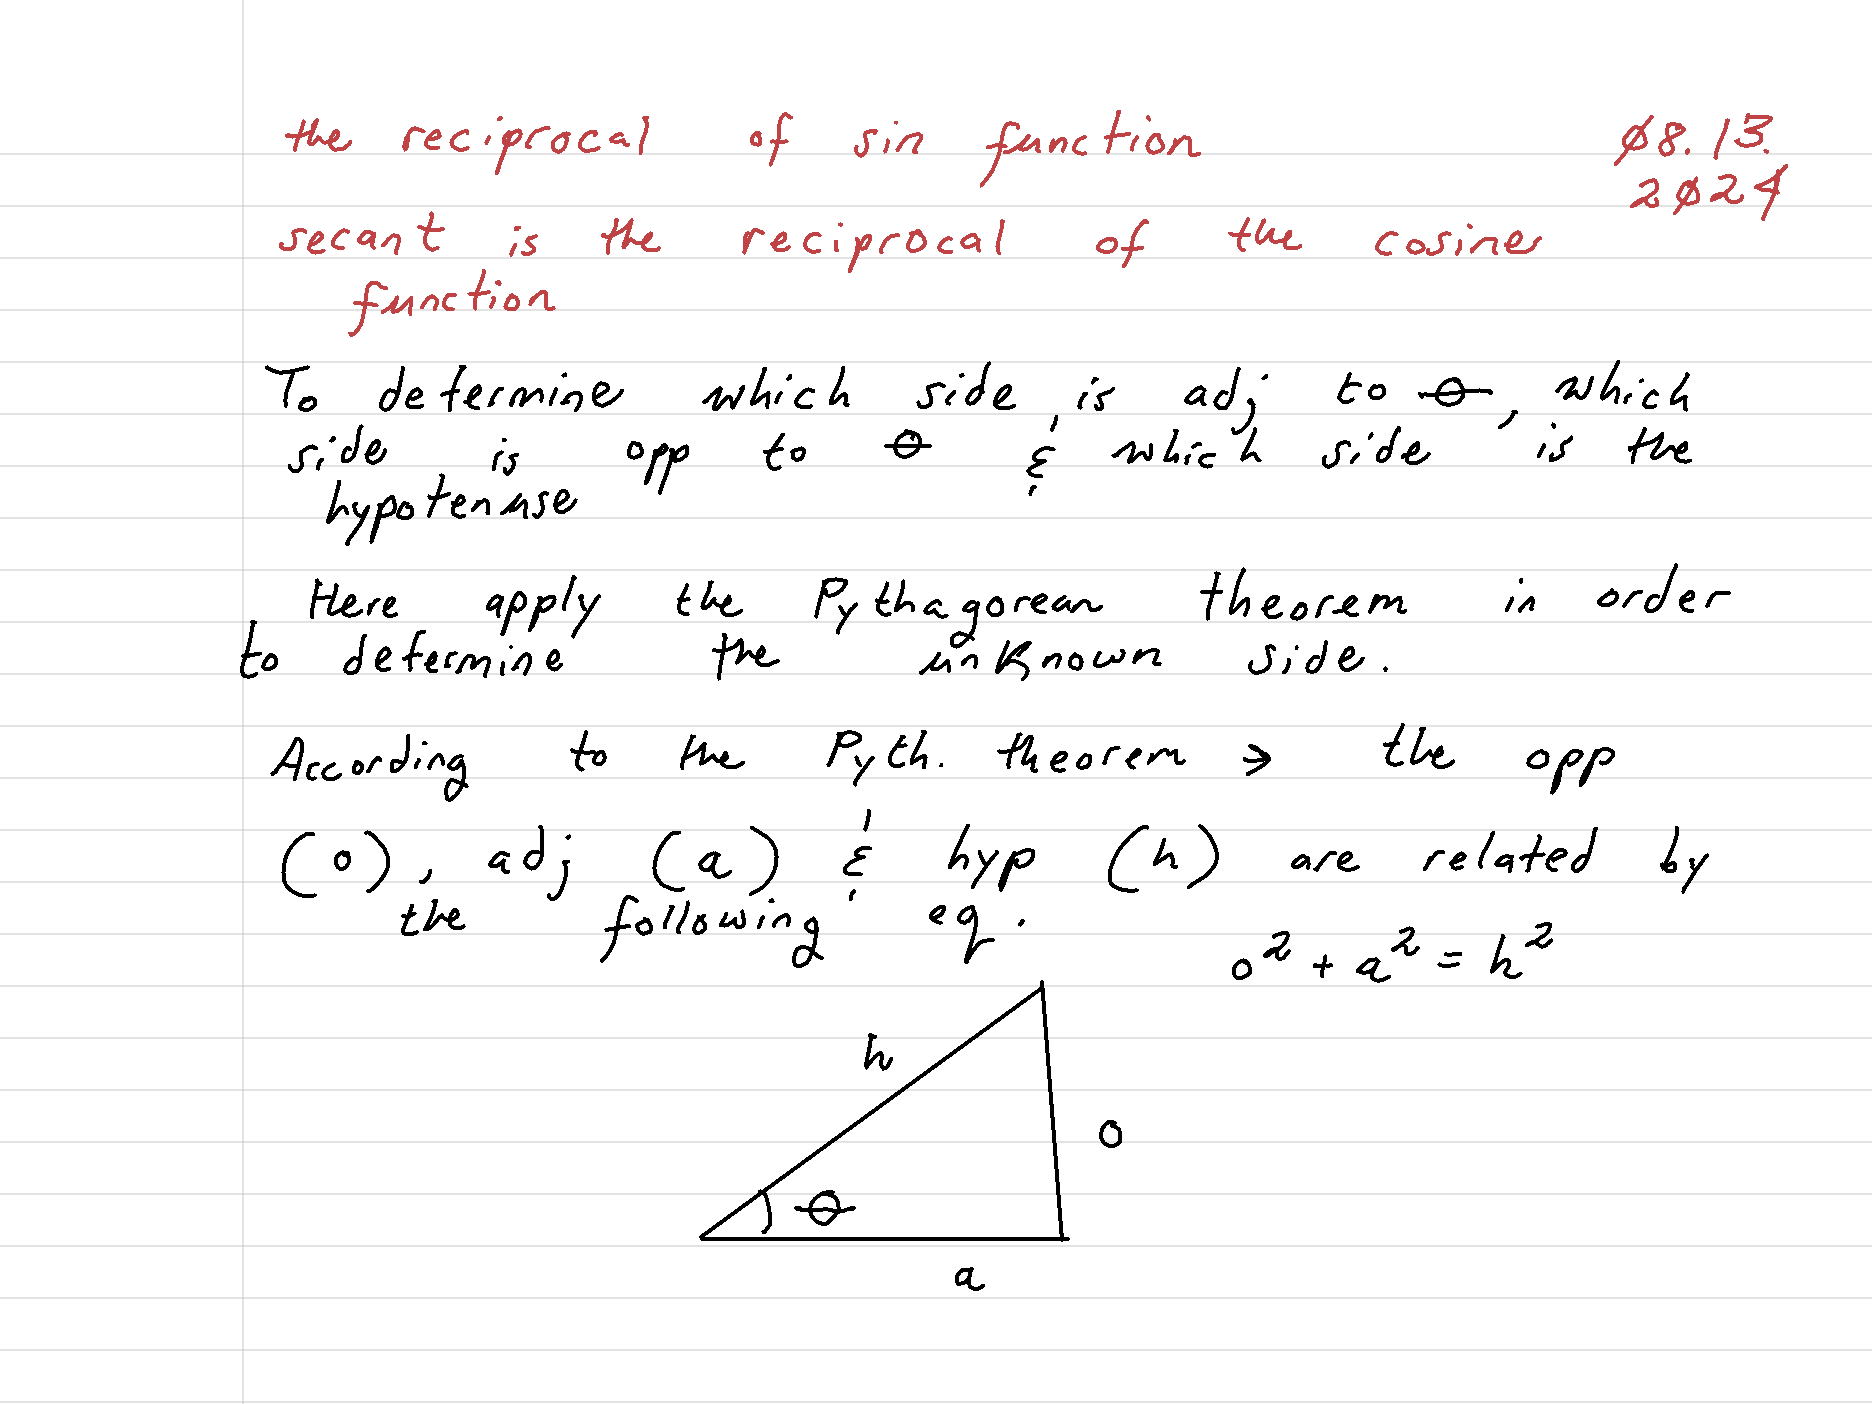 the reciprocal of sin function
Ø8.13.
2Ø24
secant is the reciprocal of the cosine
function
To determine which side is adj to θ, which
side is opp to θ & which side is the
hypotenuse
Here apply the Pythagorean theorem in order
to determine the unknown side.
According to the Pyth. theorem → the opp
(o), adj (a) & hyp (h) are related by
the following eq.
o² + a² = h²
h
o
θ
a